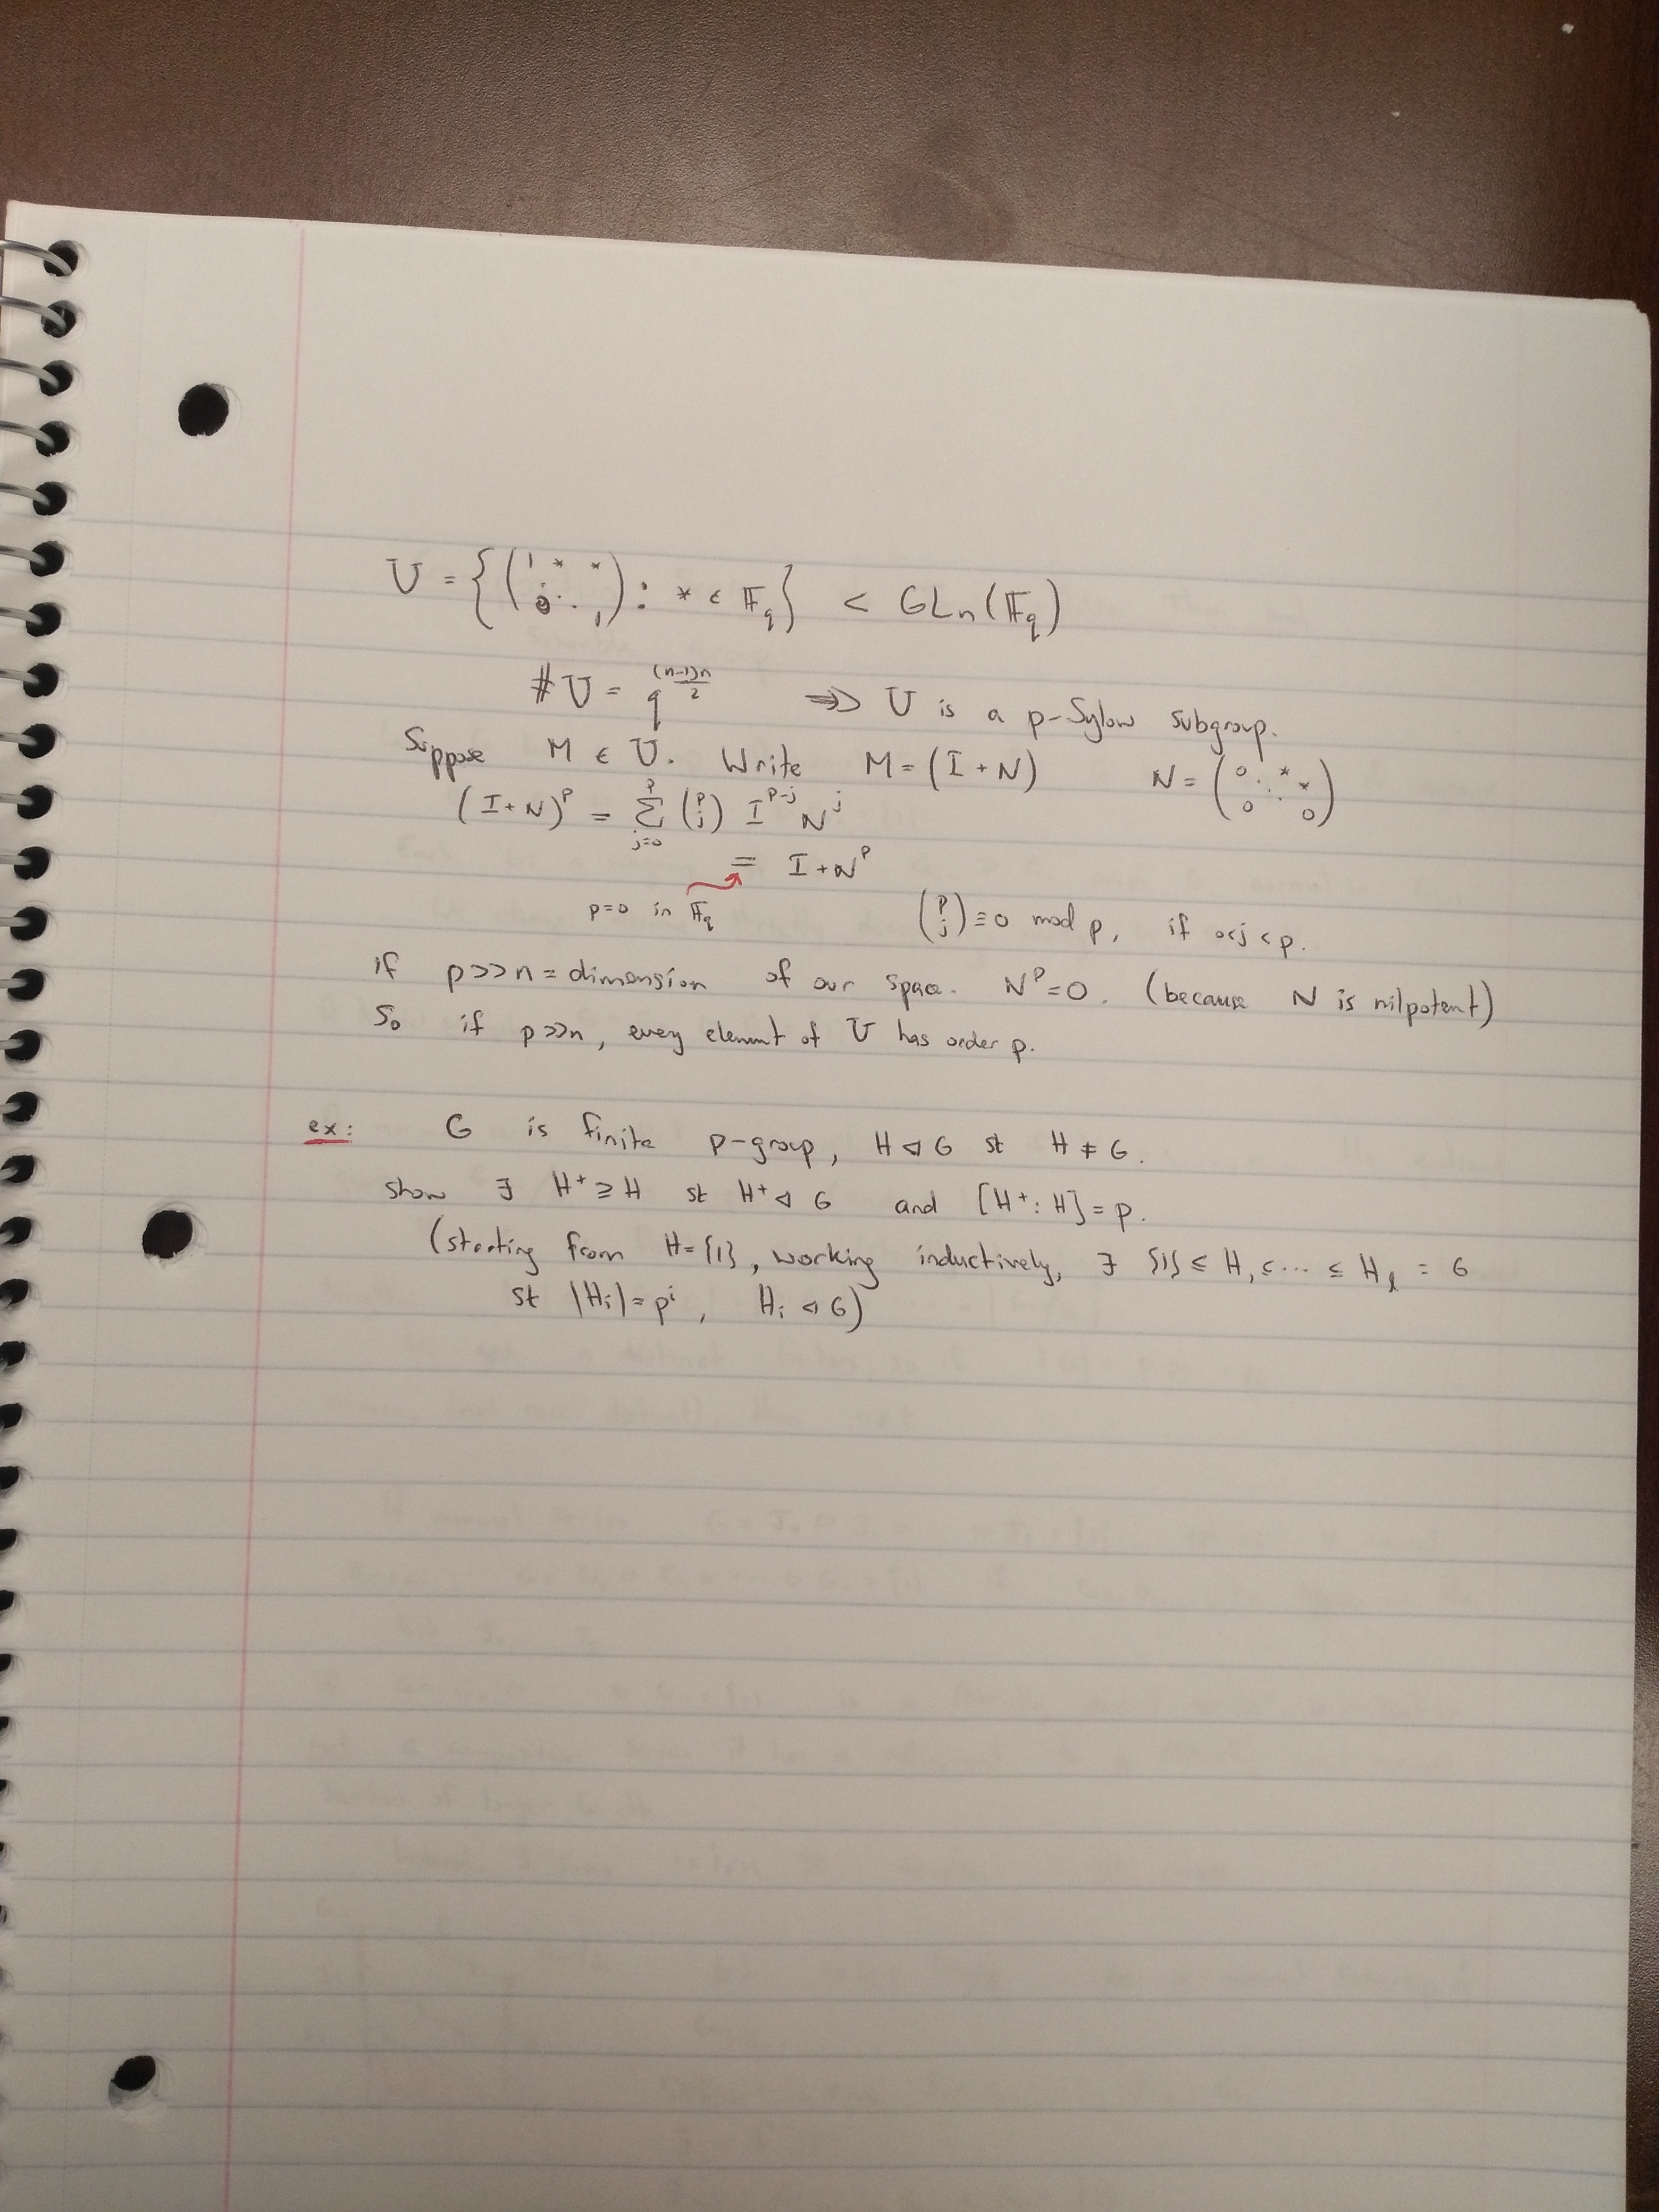 U = {(1 * * 0 ⋱ 1) : * ∈ 𝔽_q} < GL_n(𝔽_q)
#U = q^{(n-1)n/2} ⇒ U is a p-Sylow subgroup.
Suppose M ∈ U. Write M = (I + N) N = (0 ⋱ * * 0 ⋱ 0)
(I + N)^p = Σ_{j=0}^{p} (p j) I^{p-j} N^j
= I + N^p
p=0 in 𝔽_q (p j) ≡ 0 mod p, if 0<j<p.
if p>>n = dimension of our space. N^p = 0. (because N is nilpotent)
So if p>>n, every element of U has order p.
ex: G is finite p-group, H ◁ G st H ≠ G.
show ∃ H⁺ ≥ H st H⁺ ◁ G and [H⁺: H] = p.
(starting from H={1}, working inductively, ∃ {1} ≤ H₁ ≤ ⋯ ≤ H_l = G
st |H_i| = p^i, H_i ◁ G)